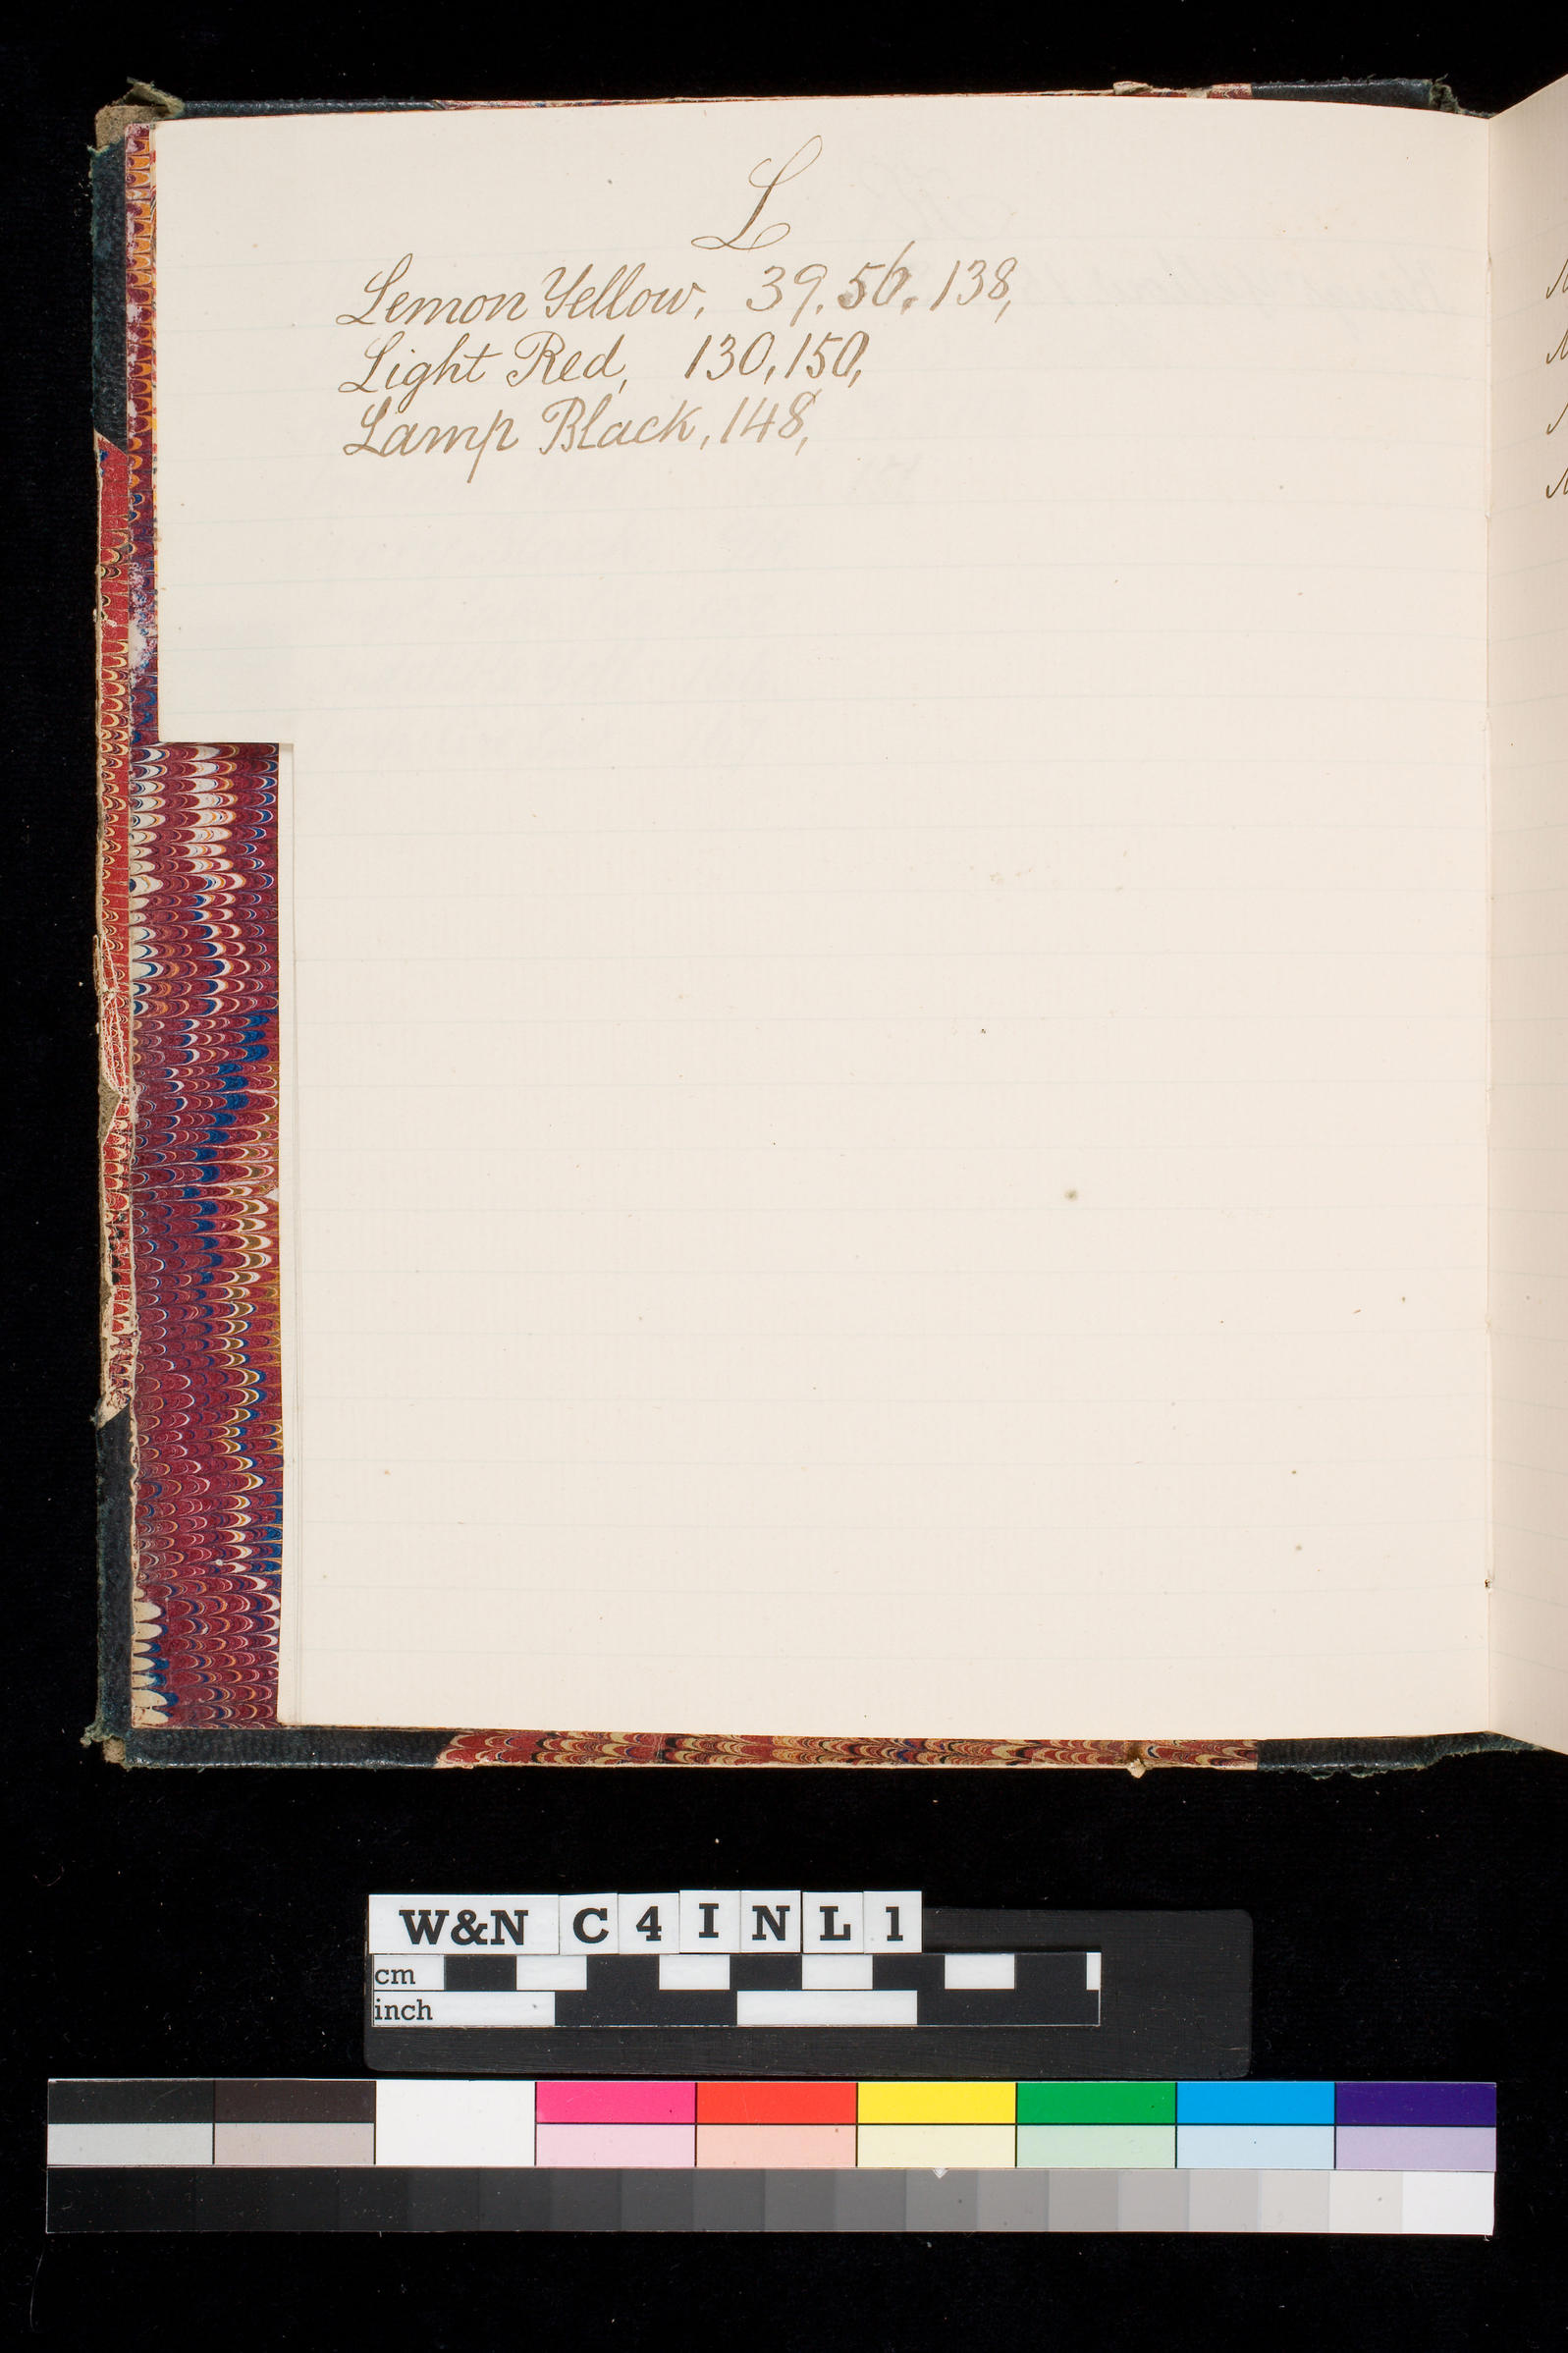 L
Lemon Yellow, 39, 56, 138,
Light Red, 130, 150,
Lamp Black, 148,
W&N C 4 I N L 1
cm
inch